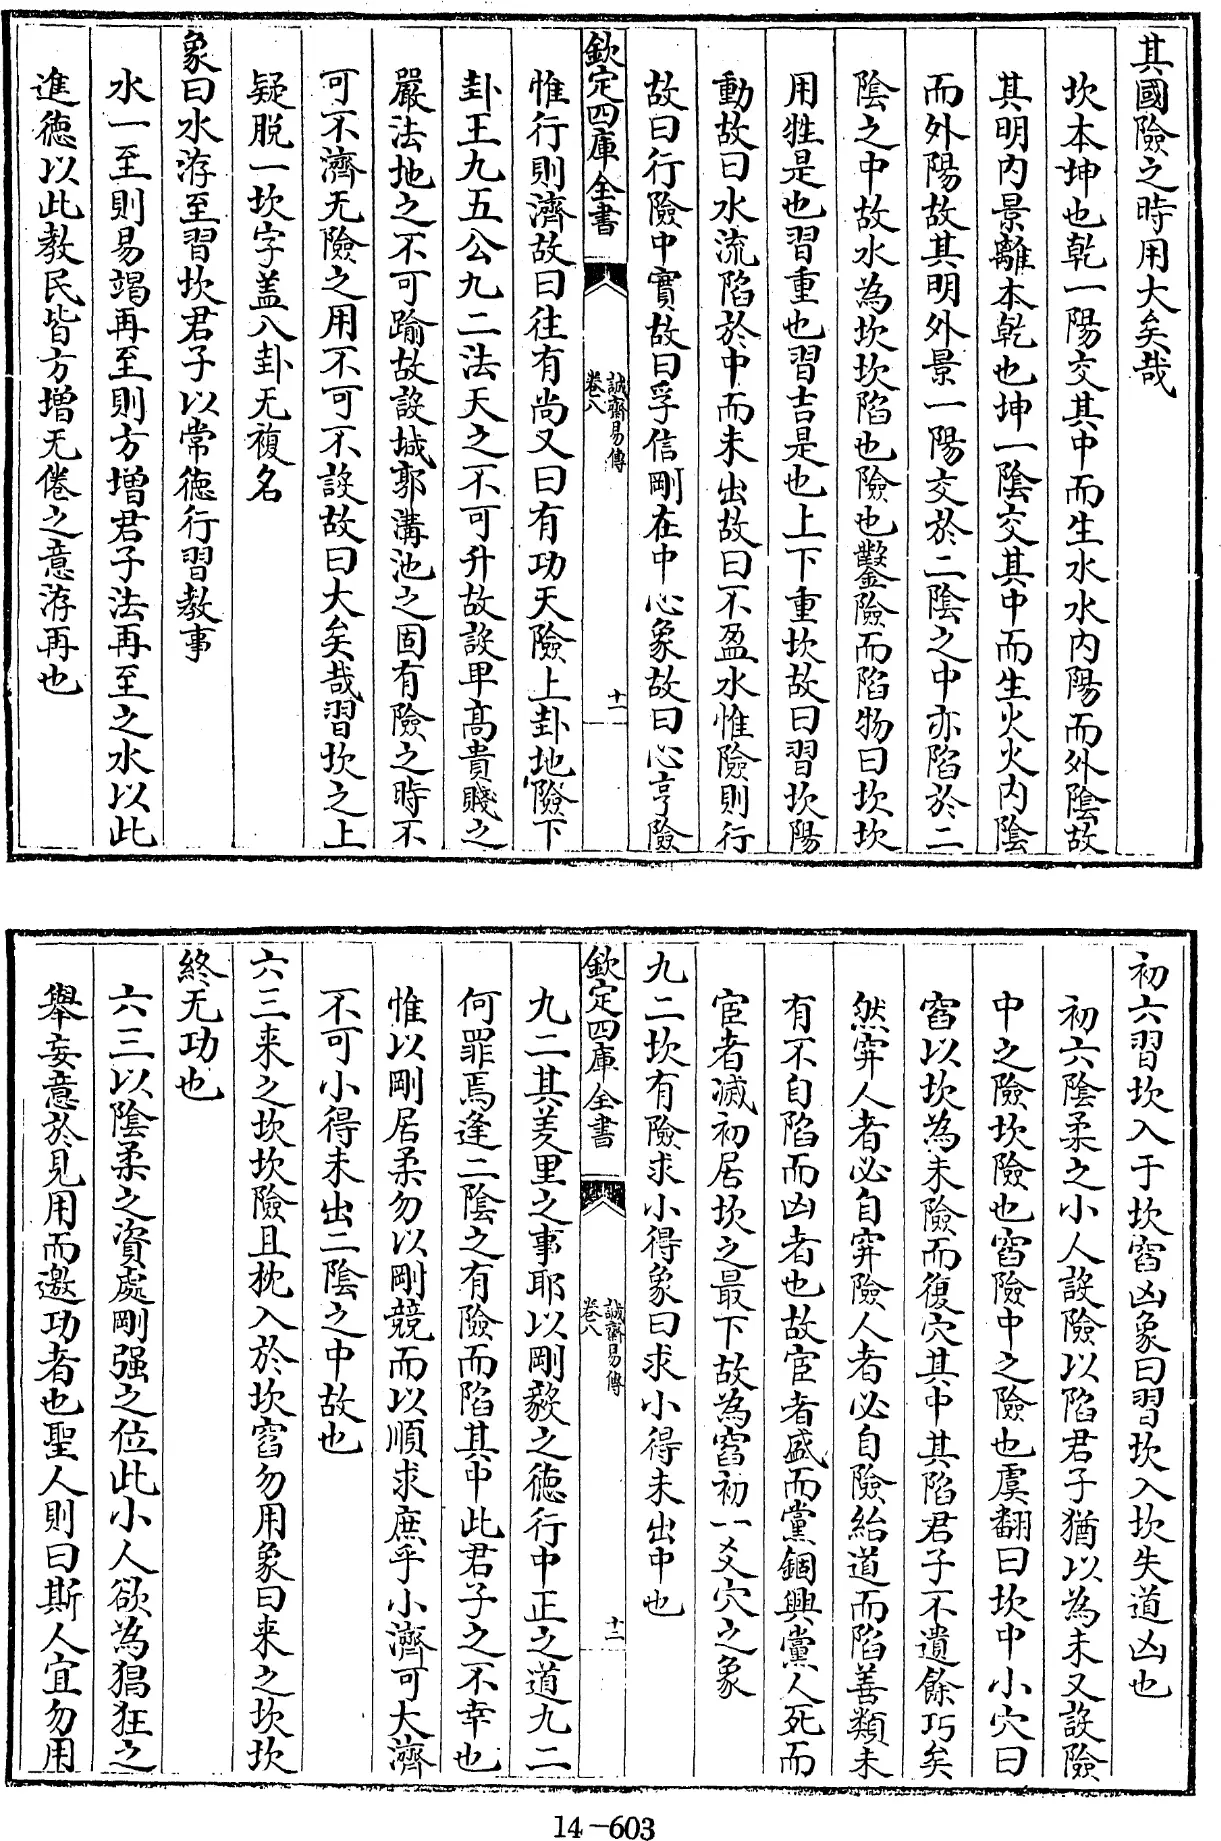 其國險之時用大矣哉
坎本坤也乾一陽交其中而生水水内陽而外陰故
其明内景離本乾也坤一陰交其中而生火火内陰
而外陽故其明外景一陽交於二陰之中亦陷於二
陰之中故水為坎坎陷也險也鑿險而陷物曰坎坎
用牲是也習重也習吉是也上下重坎故曰習坎陽
動故曰水流陷於中而未出故曰不盈水惟險則行
故曰行險中實故曰孚信剛在中心象故曰心亨險
欽定四庫全書
誠齋易傳
卷八
十一
惟行則濟故曰往有尚又曰有功天險上卦地險下
卦王九五公九二法天之不可升故設卑高貴賤之
嚴法地之不可踰故設城郭溝池之固有險之時不
可不濟无險之用不可不設故曰大矣哉習坎之上
疑脱一坎字盖八卦无複名
象曰水洊至習坎君子以常徳行習教事
水一至則易竭再至則方增君子法再至之水以此
進徳以此教民皆方增无倦之意洊再也
初六習坎入于坎窞凶象曰習坎入坎失道凶也
初六陰柔之小人設險以陷君子猶以為未又設險
中之險坎險也窞險中之險也虞翻曰坎中小穴曰
窞以坎為未險而復穴其中其陷君子不遺餘巧矣
然穽人者必自穽險人者必自險紿道而陷善類未
有不自陷而凶者也故宦者盛而黨錮興黨人死而
宦者滅初居坎之最下故為窞初一爻穴之象
九二坎有險求小得象曰求小得未出中也
欽定四庫全書
誠齋易傳
卷八
十二
九二其羑里之事耶以剛毅之徳行中正之道九二
何罪焉逢二陰之有險而陷其中此君子之不幸也
惟以剛居柔勿以剛競而以順求庶乎小濟可大濟
不可小得未出二陰之中故也
六三来之坎坎險且枕入於坎窞勿用象曰来之坎坎
終无功也
六三以陰柔之資處剛强之位此小人欲為猖狂之
舉妄意於見用而邀功者也聖人則曰斯人宜勿用
14-603